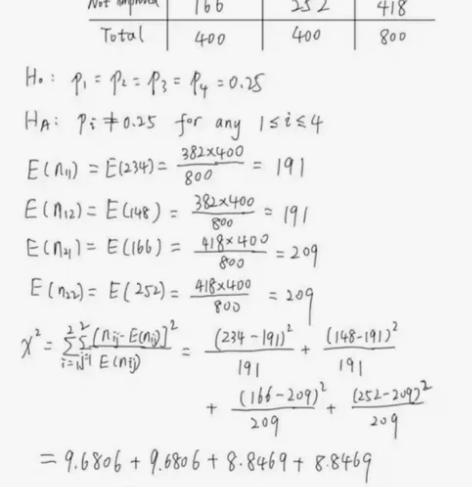 Not improved 166 252 418
Total 400 400 800
H₀: p₁ = p₂ = p₃ = p₄ = 0.25
H_A: p_i ≠ 0.25 for any 1 ≤ i ≤ 4
E(n₁₁) = E(234) = 382×400 / 800 = 191
E(n₁₂) = E(148) = 382×400 / 800 = 191
E(n₂₁) = E(166) = 418×400 / 800 = 209
E(n₂₂) = E(252) = 418×400 / 800 = 209
χ² = Σ_{i=1}^{2} Σ_{j=1}^{2} [n_ij - E(n_ij)]² / E(n_ij) = (234-191)² / 191 + (148-191)² / 191
+ (166-209)² / 209 + (252-209)² / 209
= 9.6806 + 9.6806 + 8.8469 + 8.8469